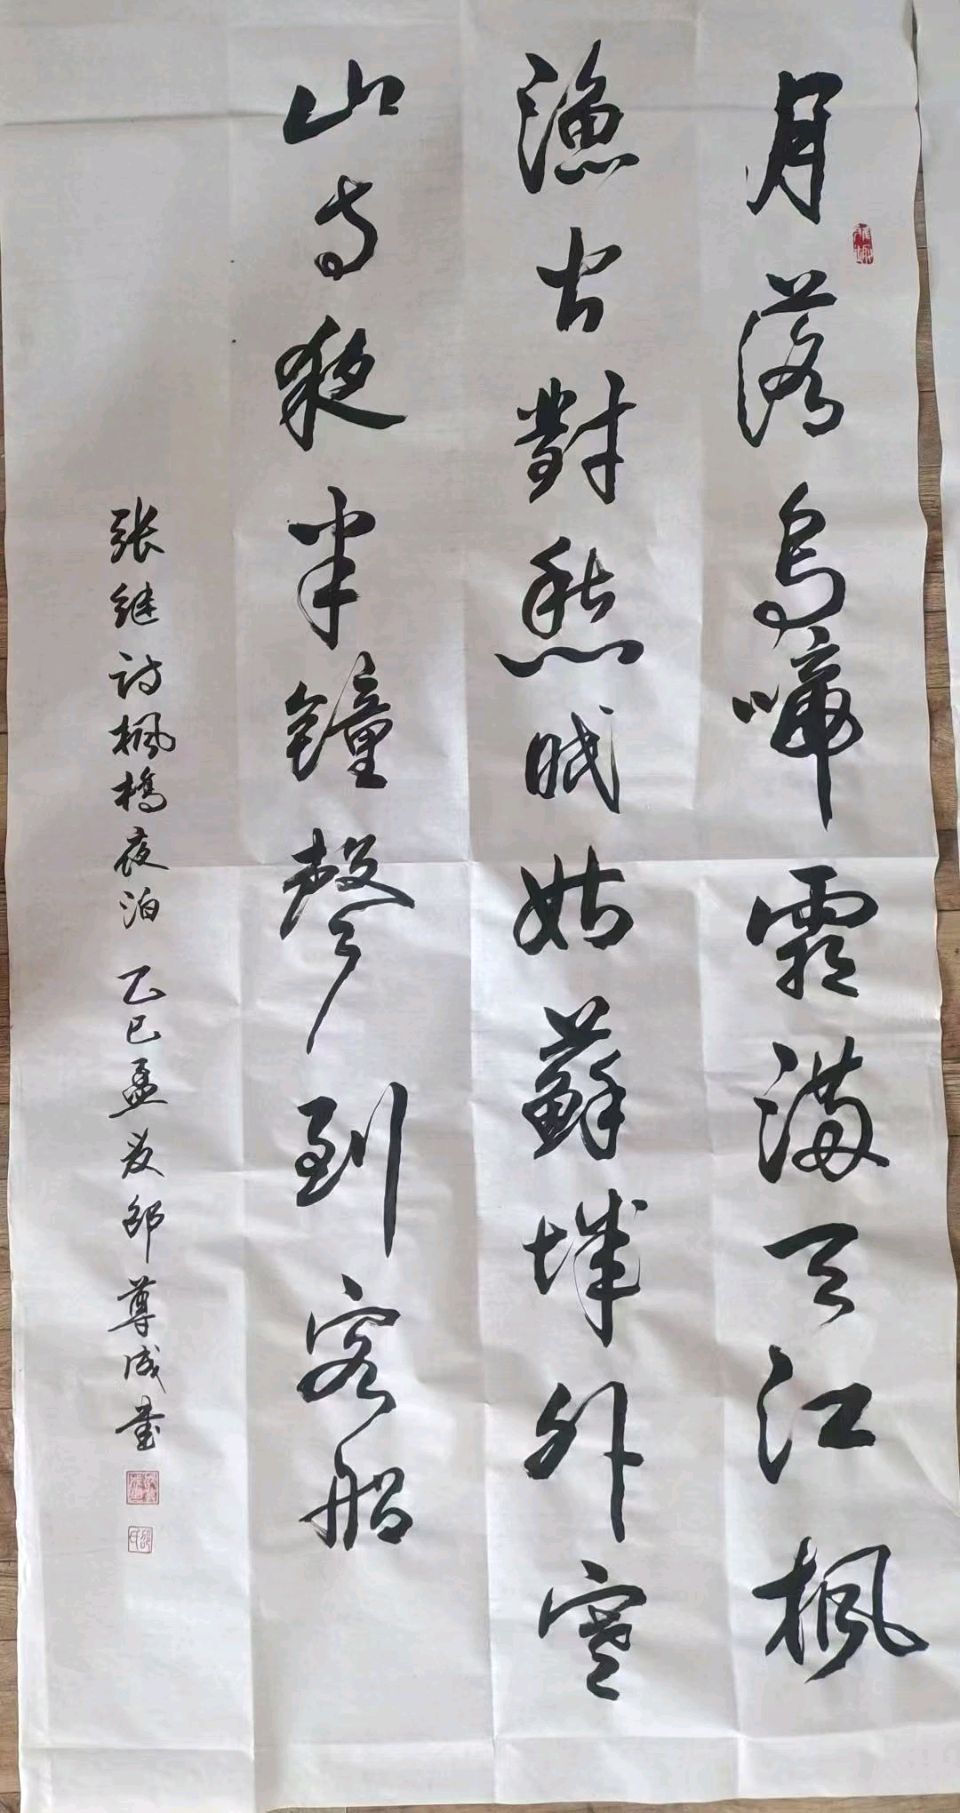 月落烏啼霜滿天江楓
漁火對愁眠姑蘇城外寒
山寺夜半鐘聲到客船
张继诗楓橋夜泊 乙巳孟夏邵尊成書